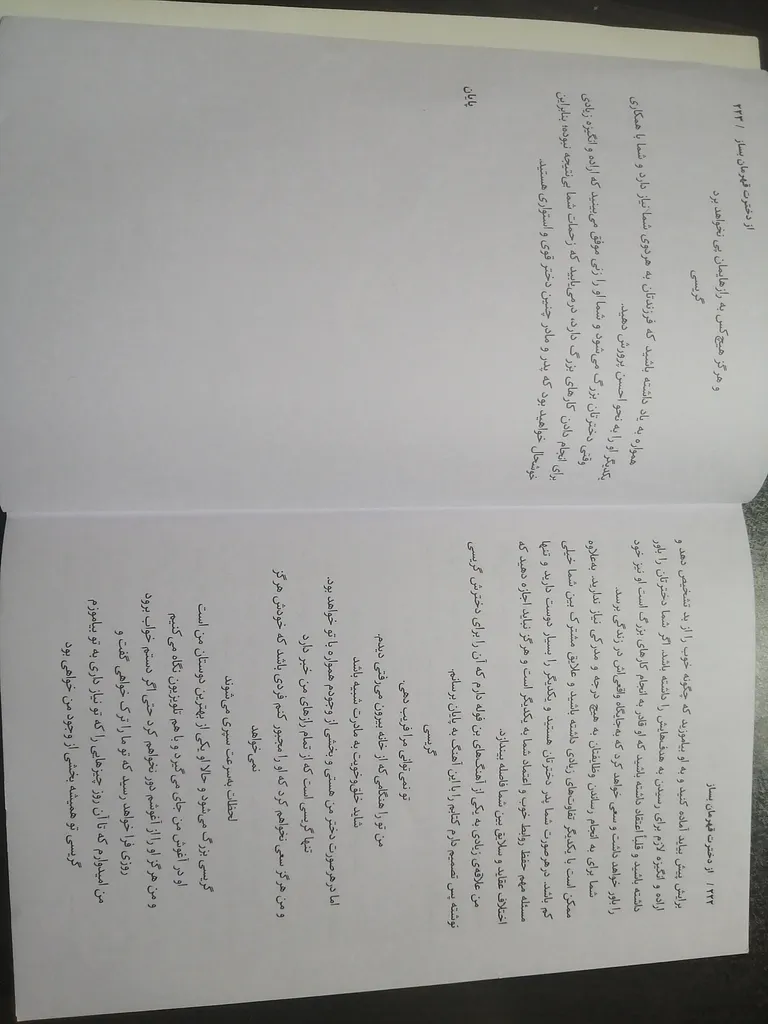 ۲۲۲ / از دخترت قهرمان بساز
برایش پیش بیاید آماده کنید و به او بیاموزید که چگونه خوب را از بد تشخیص دهد و
اراده و انگیزه لازم برای رسیدن به هدف‌هایش را داشته باشد. اگر شما دخترتان را باور
داشته باشید و قلباً اعتقاد داشته باشید که او قادر به انجام کارهای بزرگ است او نیز خود
را باور خواهد داشت و سعی خواهد کرد که به‌جایگاه واقعی‌اش در زندگی برسد.
شما برای به انجام رساندن وظایفتان به هیچ درجه و مدرکی نیاز ندارید. به‌علاوه
ممکن است با یکدیگر تفاوت‌های زیادی داشته باشید و علایق مشترک بین شما خیلی
کم باشد. درهرصورت شما پدر دخترتان هستید و یکدیگر را بسیار دوست دارید و تنها
مسئله مهم حفظ روابط خوب و اعتماد شما به یکدیگر است و هرگز نباید اجازه دهید که
اختلاف عقاید و سلایق بین شما فاصله بیندازد.
من علاقه‌ی زیادی به یکی از آهنگ‌های بن فولد دارم که آن را برای دخترش گریسی
نوشته پس تصمیم دارم کتابم را با این آهنگ به پایان برسانم.
گریسی
تو نمی‌توانی مرا فریب دهی.
من تو را هنگامی‌که از خانه بیرون می‌رفتی دیدم.
شاید خلق‌وخویت به مادرت شبیه باشد
اما درهرصورت دختر من هستی و بخشی از وجودم همواره با تو خواهد بود.
تنها گریسی است که از تمام رازهای من خبر دارد
و من هرگز سعی نخواهم کرد که او را مجبور کنم فردی باشد که خودش هرگز
نمی‌خواهد
لحظات به‌سرعت سپری می‌شوند
گریسی بزرگ می‌شود و حالا او یکی از بهترین دوستان من است
او در آغوش من جای می‌گیرد و با هم تلویزیون نگاه می‌کنیم
و من هرگز او را از آغوشم دور نخواهم کرد حتی اگر دستم خواب برود
روزی فرا خواهد رسید که تو ما را ترک خواهی گفت و
من امیدوارم که تا آن روز چیزهایی را که تو نیاز داری به تو بیاموزم
گریسی تو همیشه بخشی از وجود من خواهی بود
از دخترت قهرمان بساز / ۲۲۳
و هرگز هیچ کس به رازهایمان پی نخواهد برد
گریسی
همواره به یاد داشته باشید که فرزندتان به هردوی شما نیاز دارد و شما با همکاری
یکدیگر او را به نحو احسن پرورش دهید.
وقتی دخترتان بزرگ می‌شود و شما او را زنی موفق می‌بینید که اراده و انگیزه زیادی
برای انجام دادن کارهای بزرگ دارد، درمی‌یابید که زحمات شما بی‌نتیجه نبوده؛ بنابراین
خوشحال خواهید بود که پدر و مادر چنین دختر قوی و استواری هستید.
پایان